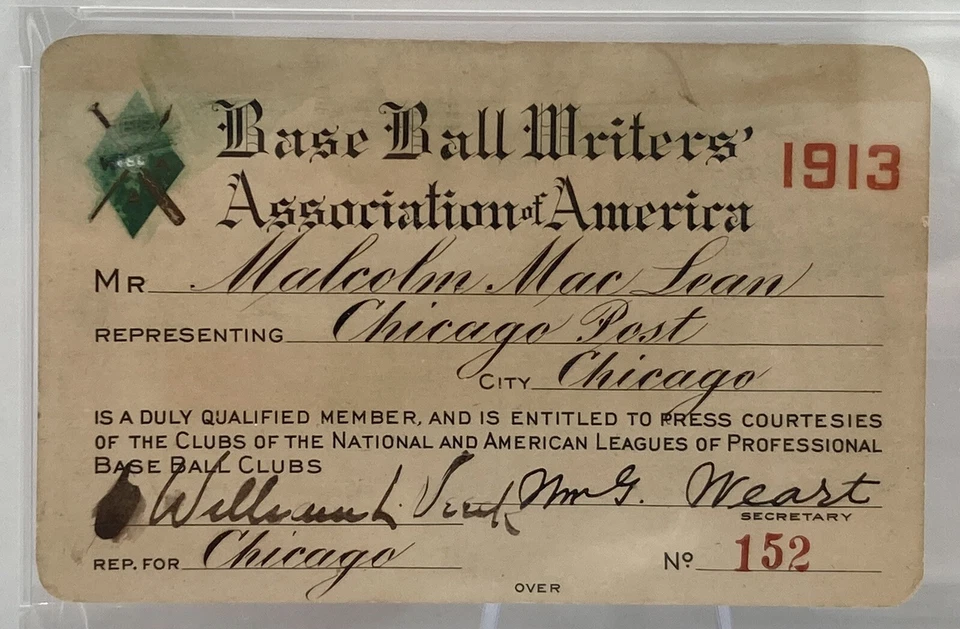 Base Ball Writers'
Association of America
1913
Mr Malcolm Mac Lean
REPRESENTING Chicago Post
CITY Chicago
IS A DULY QUALIFIED MEMBER, AND IS ENTITLED TO PRESS COURTESIES
OF THE CLUBS OF THE NATIONAL AND AMERICAN LEAGUES OF PROFESSIONAL
BASE BALL CLUBS
William L. Veeck Wm G. Weart
SECRETARY
REP. FOR Chicago No 152
OVER